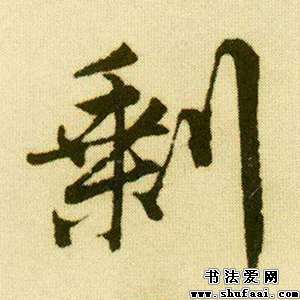 剩
书法爱网
www.shufaai.com